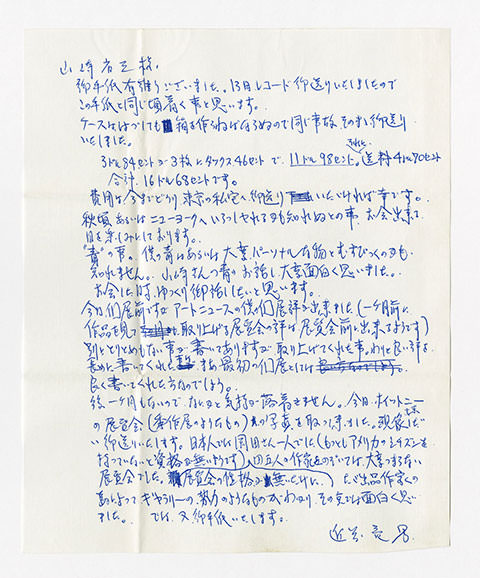 山崎省三様.
御手紙有難うございました。13日レコード御送りいたしましたので
この手紙と同じ頃着く事と思います。
ケースははづしても箱を作らねばならぬので同じ事故そのまゝ御送り
いたしました。
3ドル84セントが3枚にタックス46セントで 11ドル98セント。送料4ドル70セント
合計.16ドル68セントです。
費用は今までどうり 東京の私宅へ御送りいたゞければ幸です。
秋頃あるいはニューヨークへいらっしゃるかも知れぬとの事 お会い出来る
日を楽しみにしております。
"青"の事。僕の青はあるいは大変パーソナルな物とむすびつくのかも
知れません。山崎さんの青のお話し大変面白く思いました。
お会した時.ゆっくり御話したいと思います。
今日.個展前ですがアートニュースの僕の個展評が出来ました(一ヶ月前に
作品を見て取り上げる展覧会の評は展覧会前に出来るようです)
別にとりとめもない事が書いてありますが取り上げてくれた事.わりと良い評を
長めに書いてくれた まあ最初の個展としては
良く書いてくれた方なのでしょう。
後一ヶ月もないので なにかと気持が落着きません。今日.ホイットニー
の展覧会(新作展のようなもの)の写真を取って来ました。現像しだ
い御送りいたします。日本人では岡田さん一人でした(もっともアメリカのシチズンを
持っていないと資格が無いようです)四五人の作家をのぞいては.大変つまらない
展覧会でした。(展覧会の性格が無いだけに) たゞ出品作家の
数によってギャラリーの勢力のようなものがわかり.その点では面白く思い
ました。 では、又御手紙いたします。
近藤竜男